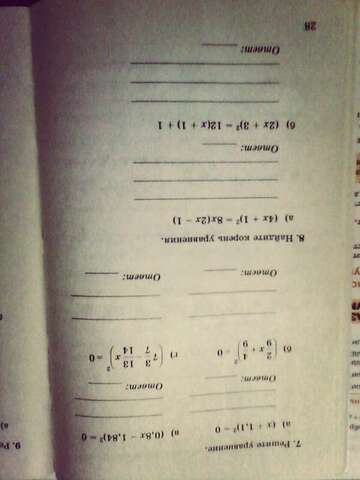 7. Решите уравнение.
а) (x + 1,1)² = 0
в) (0,8x − 1,84)² = 0
Ответ:
Ответ:
б) (2/9 x + 4/9)² = 0
г) (7 3/7 − 13/14 x)² = 0
Ответ:
Ответ:
8. Найдите корень уравнения.
а) (4x + 1)² = 8x(2x − 1)
Ответ:
б) (2x + 3)² = 12(x + 1) + 1
Ответ:
28
9. Ре
а)